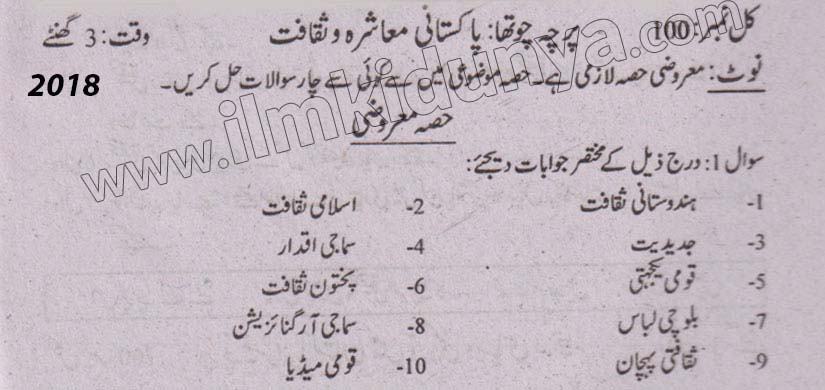 کل نمبر: 100 پرچہ چوتھا: پاکستانی معاشرہ و ثقافت وقت: 3 گھنٹے
نوٹ: معروضی حصہ لازمی ہے۔ حصہ موضوعی میں سے کوئی سے چار سوالات حل کریں۔
2018
حصہ معروضی
www.ilmkidunya.com
سوال 1: درج ذیل کے مختصر جوابات دیجئے:
1- ہندوستانی ثقافت 2- اسلامی ثقافت
3- جدیدیت 4- سماجی اقدار
5- قومی یکجہتی 6- پختون ثقافت
7- بلوچی لباس 8- سماجی آرگنائزیشن
9- ثقافتی پہچان 10- قومی میڈیا